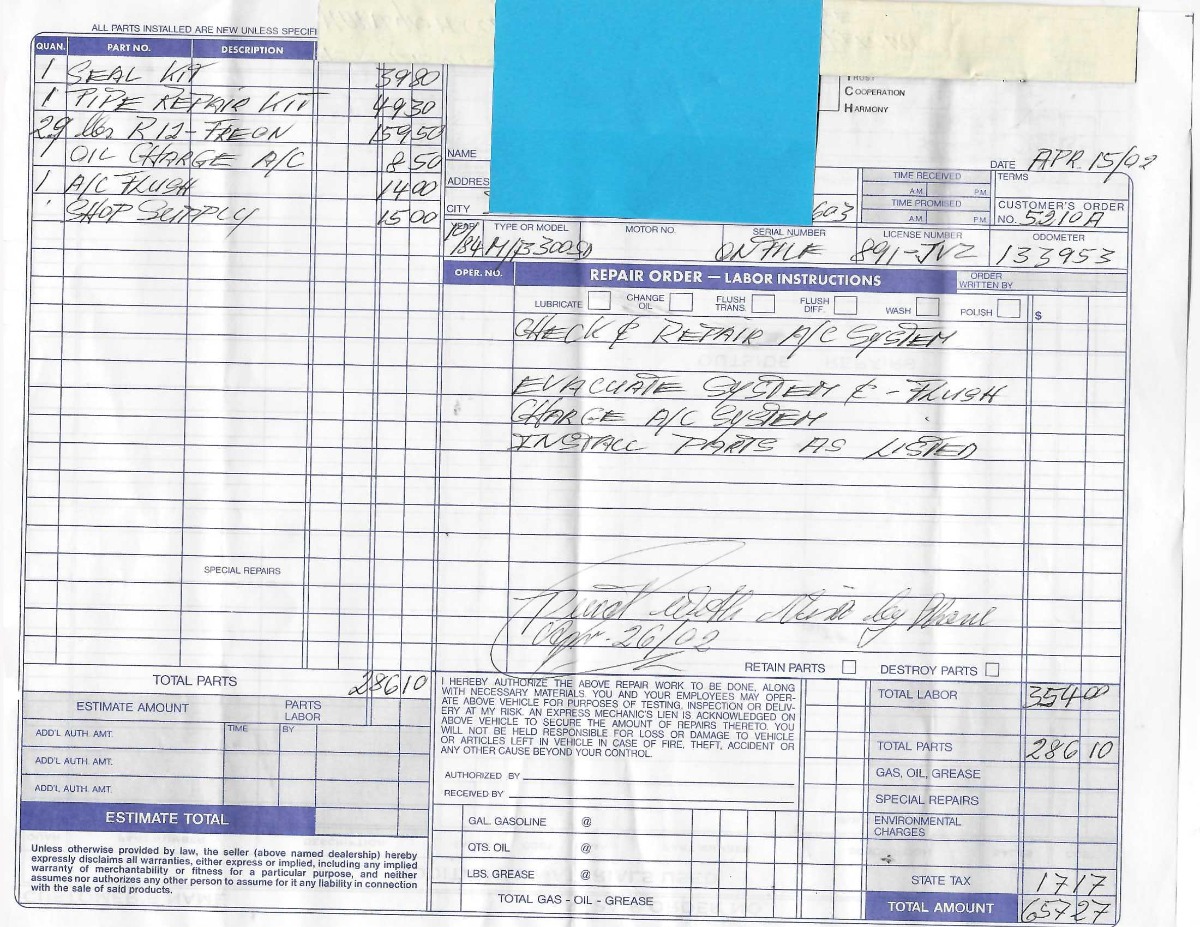 ALL PARTS INSTALLED ARE NEW UNLESS SPECIFI
QUAN. PART NO. DESCRIPTION
1 SEAL KIT 39 80
1 PIPE REPAIR KIT 49 30
29 lbs R12-FREON 159 50
1 OIL CHARGE A/C 8 50
1 A/C FLUSH 14 00
SHOP SUPPLY 15 00
SPECIAL REPAIRS
TOTAL PARTS 286 10
ESTIMATE AMOUNT PARTS
LABOR
ADD'L AUTH. AMT. TIME BY
ADD'L AUTH. AMT.
ADD'L AUTH. AMT.
ESTIMATE TOTAL
Unless otherwise provided by law, the seller (above named dealership) hereby
expressly disclaims all warranties, either express or implied, including any implied
warranty of merchantability or fitness for a particular purpose, and neither
assumes nor authorizes any other person to assume for it any liability in connection
with the sale of said products.
TRUST
COOPERATION
HARMONY
NAME
DATE APR 15/02
ADDRES
TIME RECEIVED
A.M. P.M.
TERMS
CITY 603
TIME PROMISED
A.M. P.M.
CUSTOMER'S ORDER
NO. 5210A
YEAR TYPE OR MODEL MOTOR NO. SERIAL NUMBER LICENSE NUMBER ODOMETER
84 M/B 300SD ON FILE 891-JVZ 133953
OPER. NO. REPAIR ORDER — LABOR INSTRUCTIONS ORDER
WRITTEN BY
LUBRICATE CHANGE OIL FLUSH TRANS. FLUSH DIFF. WASH POLISH $
CHECK & REPAIR A/C SYSTEM
EVACUATE SYSTEM & - FLUSH
CHARGE A/C SYSTEM
INSTALL PARTS AS LISTED
with by Phone
Apr-26/02
RETAIN PARTS DESTROY PARTS
I HEREBY AUTHORIZE THE ABOVE REPAIR WORK TO BE DONE, ALONG
WITH NECESSARY MATERIALS. YOU AND YOUR EMPLOYEES MAY OPER-
ATE ABOVE VEHICLE FOR PURPOSES OF TESTING, INSPECTION OR DELIV-
ERY AT MY RISK. AN EXPRESS MECHANIC'S LIEN IS ACKNOWLEDGED ON
ABOVE VEHICLE TO SECURE THE AMOUNT OF REPAIRS THERETO. YOU
WILL NOT BE HELD RESPONSIBLE FOR LOSS OR DAMAGE TO VEHICLE
OR ARTICLES LEFT IN VEHICLE IN CASE OF FIRE, THEFT, ACCIDENT OR
ANY OTHER CAUSE BEYOND YOUR CONTROL.
AUTHORIZED BY
RECEIVED BY
GAL. GASOLINE @
QTS. OIL @
LBS. GREASE @
TOTAL GAS - OIL - GREASE
TOTAL LABOR 354 00
TOTAL PARTS 286 10
GAS, OIL, GREASE
SPECIAL REPAIRS
ENVIRONMENTAL
CHARGES
STATE TAX 17 17
TOTAL AMOUNT 657 27